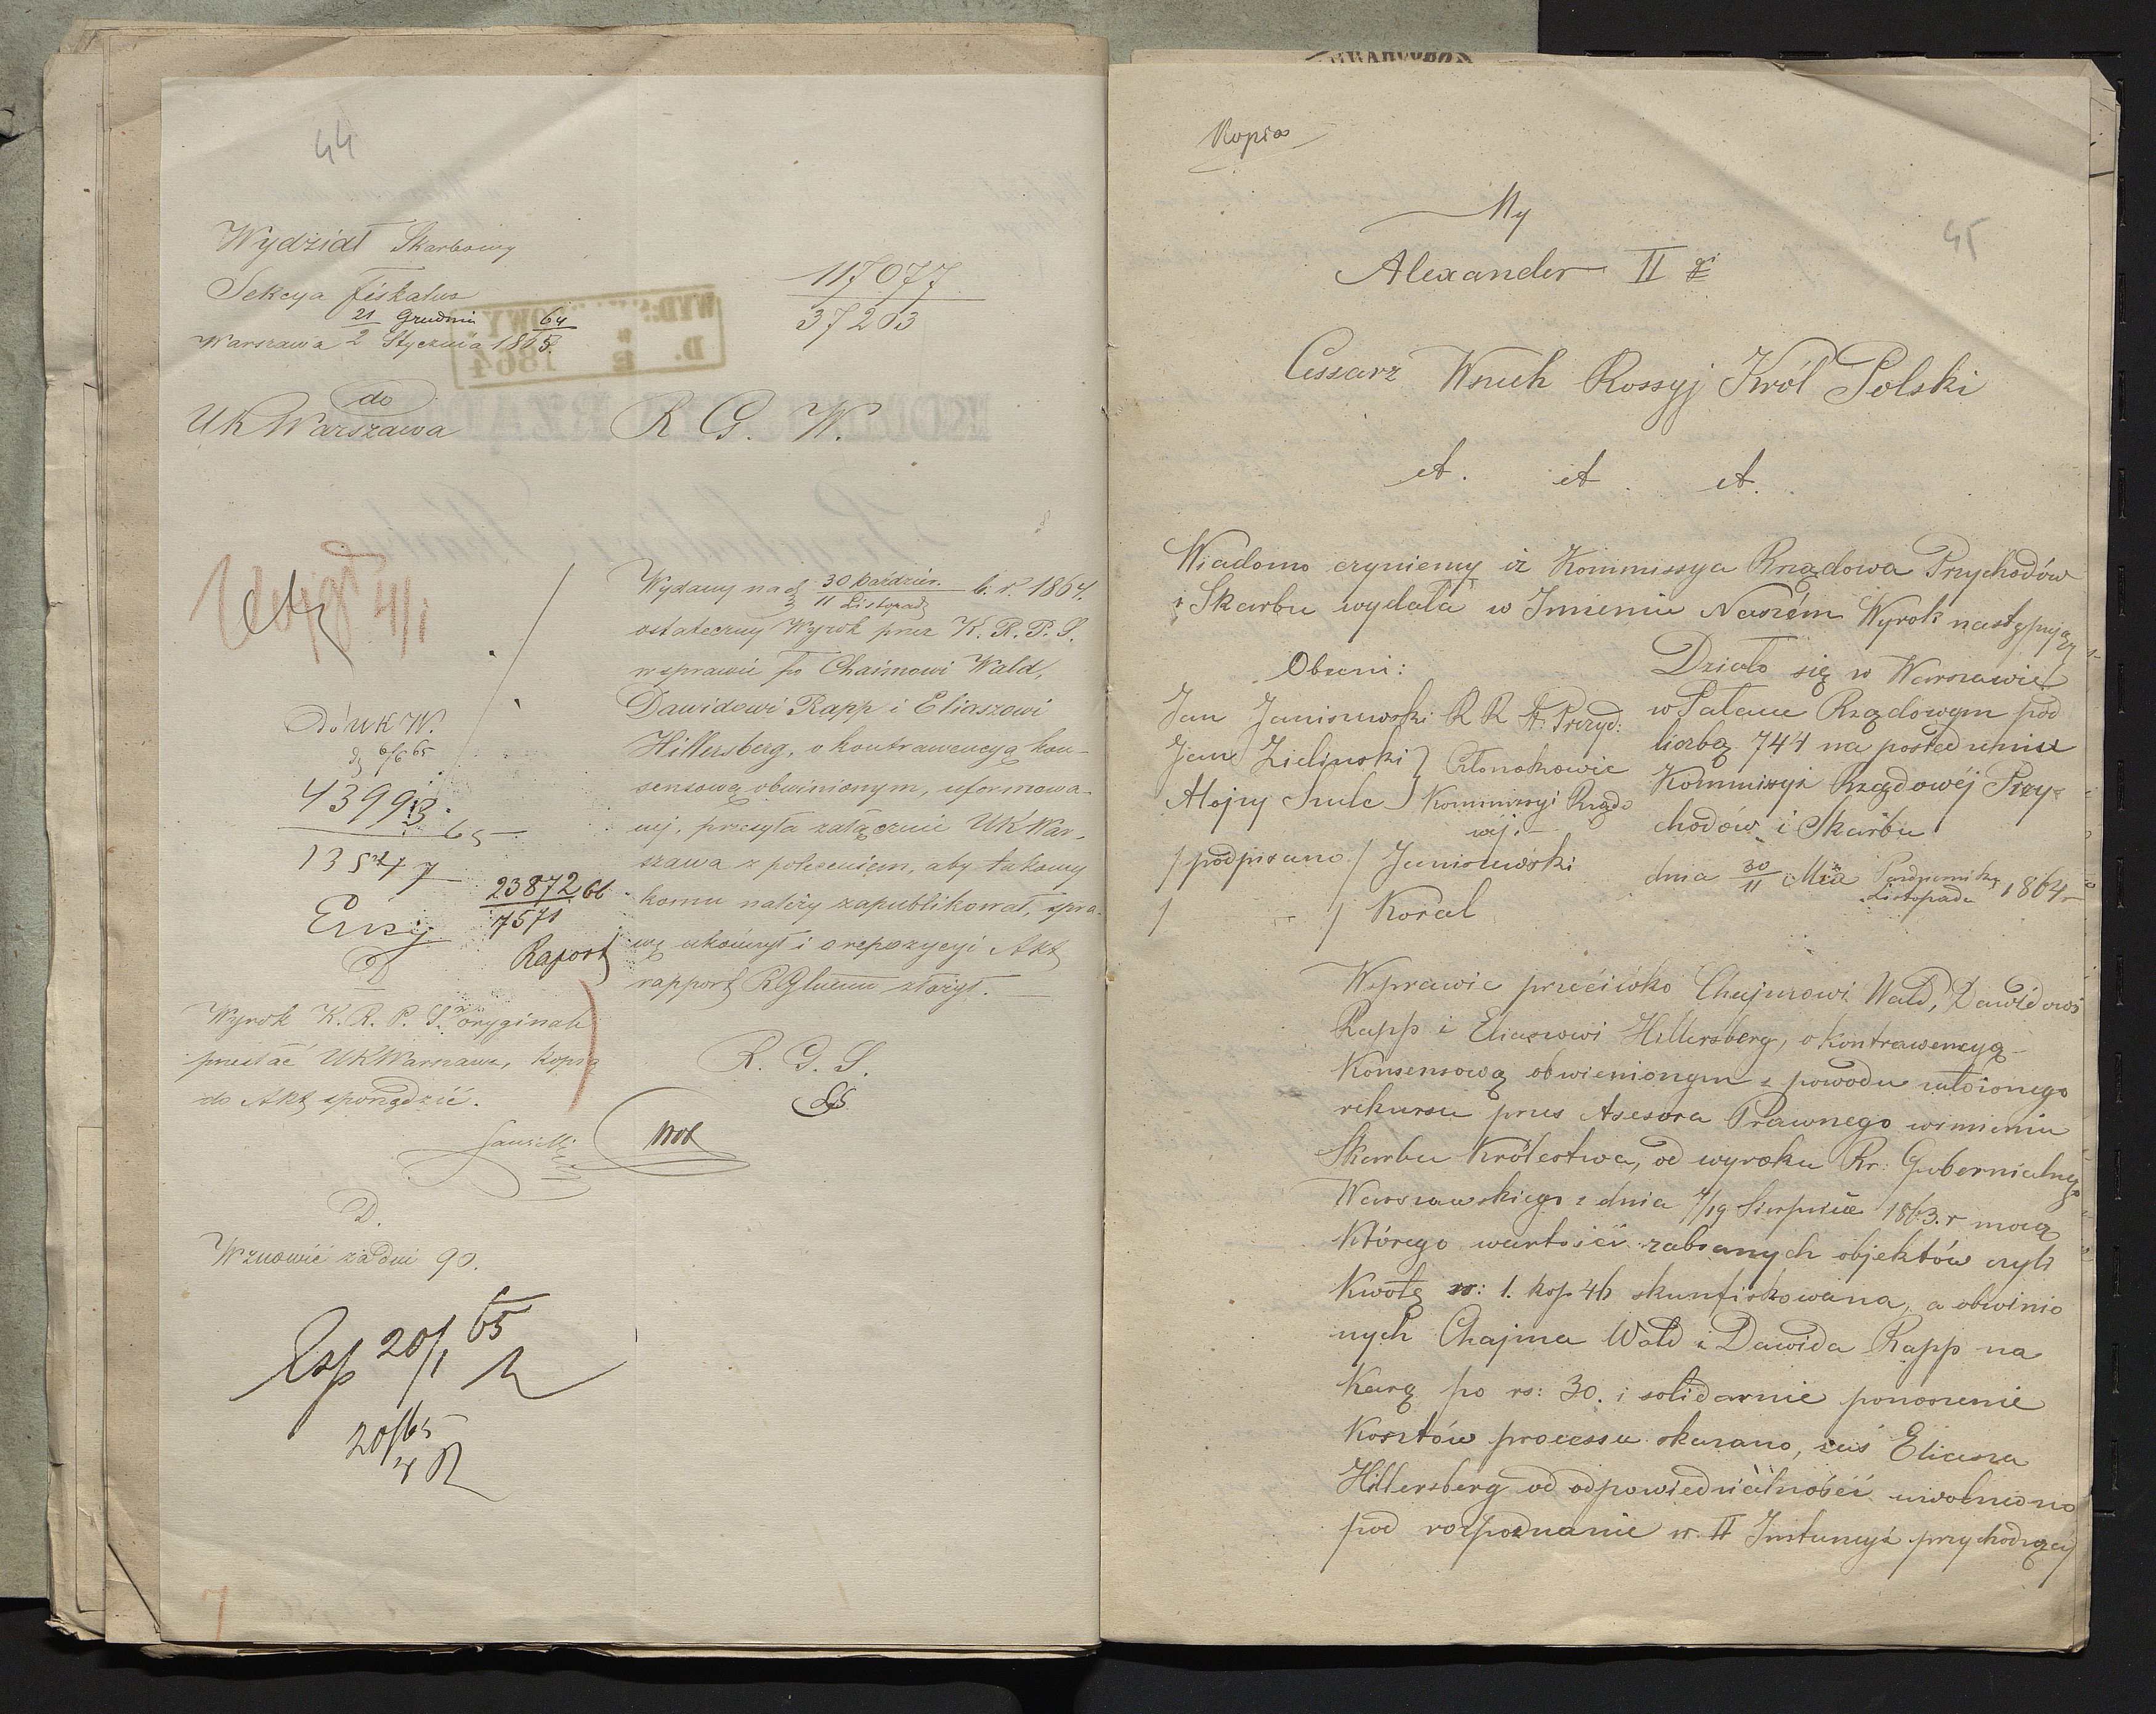 44
Wydział Skarbowy
Sekcya fiskalna
21 Grudnia 64
Warszawa 2 Stycznia 1865.
117077
37203
do
UK Warszawa
R G. W.
4/1
Wydany na d 30 Paździer. b. r. 1864.
11 Listopad
ostateczny Wyrok przez K. R. P. S.
w sprawie po Chaimowi Wald,
Dawidowi Rapp i Eliaszowi
Hillersberg, o kontrawencyą kon-
sensową obwinionym, uformowa-
nej, przesyła załącznie UK War-
szawa z poleceniem, aby takowy
komu należy zapublikował, spra-
wę ukończył i o repozycyi Akt
rapport RGlnemu złożył.
R. G. S.
Do UK W.
d 6/6 65
43993
65
13577
23872 66
7571
Raport
Wyrok K. R. P. S. w oryginale
przesłać UKWarszawa, kopią
do Akt sporządzić.
D.
Wznowić za dni 90.
Exp 20/1 65
20/4 65
Kopia
45
My
Alexander II gi
Cesarz Wszech Rossyj Król Polski
et. et. et.
Wiadomo czyniemy iż Kommissya Rządowa Przychodów
i Skarbu wydała w Imieniu Naszém Wyrok następujący
Obecni:
Jan Janiszewski R R St. Prezyd:
Jan Zieliński } Członkowie
Alojzy Szulc } Kommissyi Rządo
wéj.
/podpisano/ Janiszewski
/ " / Koral
Działo się w Warszawie
w Pałacu Rządowym pod
liczbą 744 na posiedzeniu
Kommissyi Rządowéj Przy-
chodów i Skarbu
dnia 30/11 Mca Październik/Listopada 1864 r
W sprawie przeciwko Chajmowi Wald, Dawidowi
Rapp i Eliaszowi Hillersberg, o kontrawencyą
Konsensową obwinionym z powodu założonego
rekursu przez Asesora Prawnego w imieniu
Skarbu Królestwa, od wyroku Rz: Gubernialnego
Warszawskiego z dnia 7/19 Sierpnia 1863. r mocą
Którego wartość zabranych objektów czyli
Kwotę rs: 1. kop 46 skonfiskowana, a obwinio
nych Chajma Wald i Dawida Rapp na
Karę po rs: 30. i solidarnie ponoszenie
Kosztów processu skazano, zaś Eliasza
Hillersberg od odpowiedzialności uwolniono
pod rozpoznanie w II Instancyi przychodzącej